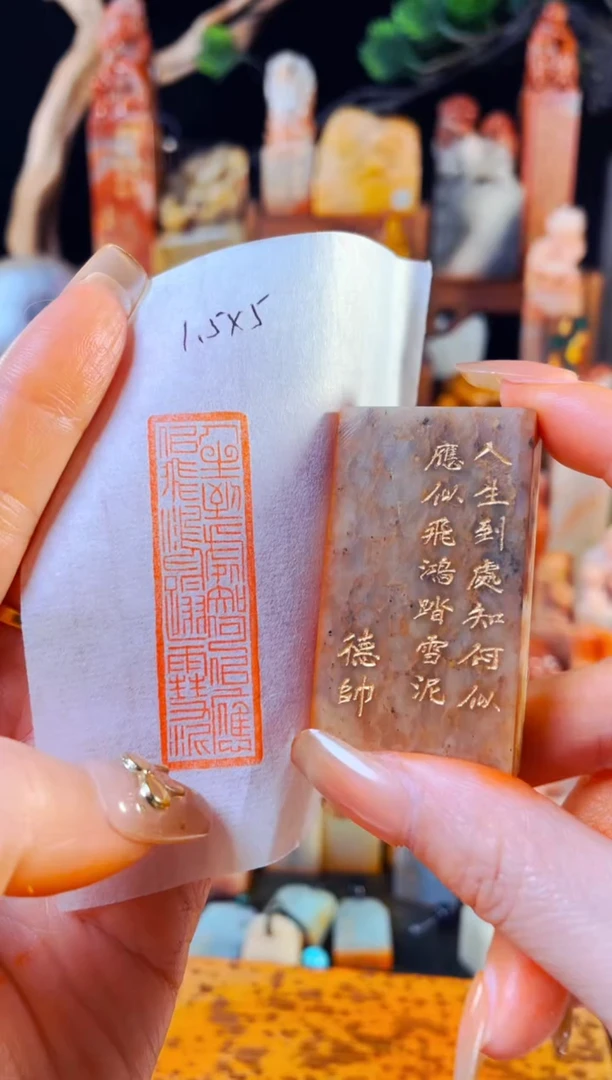 1.5×5
人生到處知何似應
似飛鴻踏雪泥
人生到處知何似
應似飛鴻踏雪泥
德帥